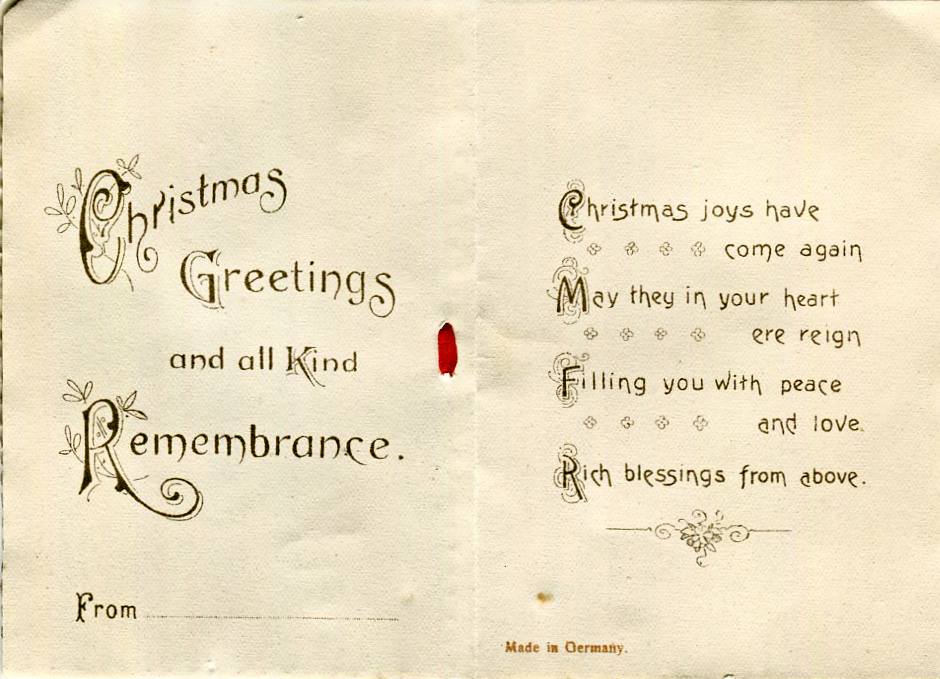 Christmas
Greetings
and all Kind
Remembrance.
From
Christmas joys have
come again
May they in your heart
ere reign
Filling you with peace
and love.
Rich blessings from above.
Made in Germany.